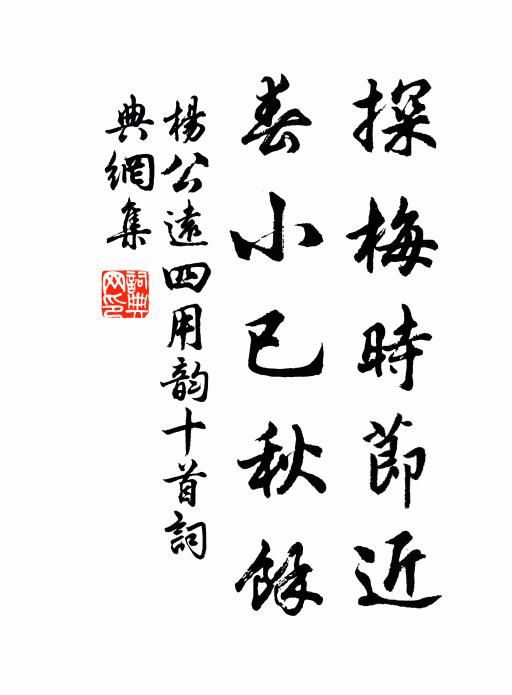 探梅時節近
春小已秋餘
楊公遠四用韵十首詞
典網集
詞典网印